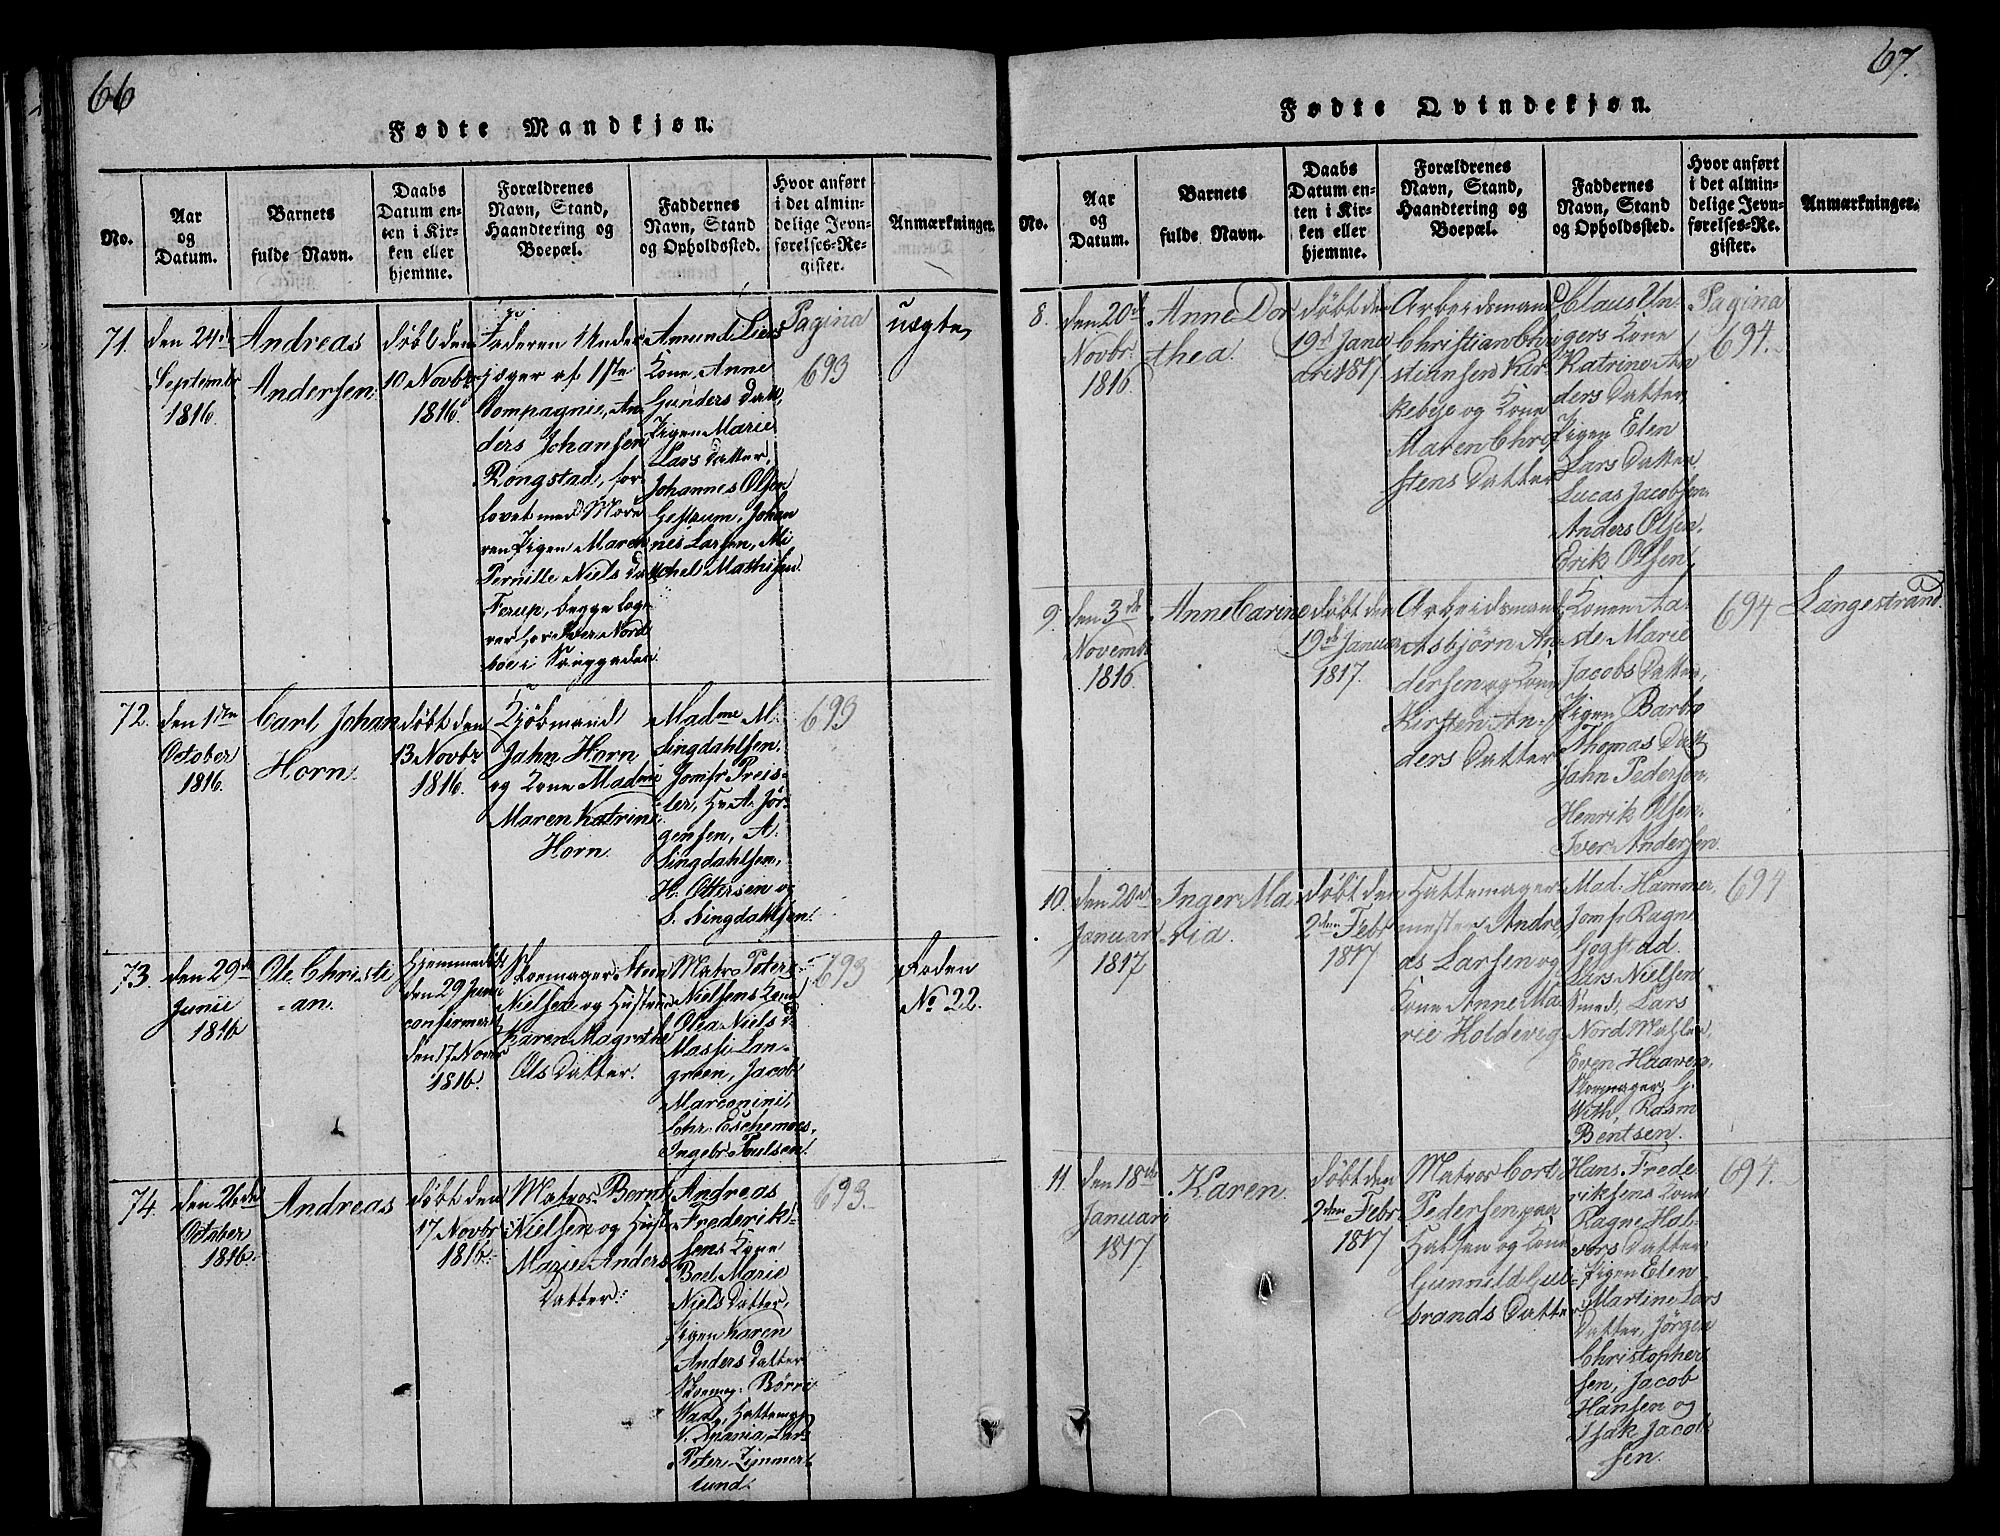 66
Fødte Mandkjøn.
No.
Aar
og
Datum.
Barnets
fulde Navn.
Daabs
Datum en-
ten i Kir-
ken eller
hjemme.
Forældrenes
Navn, Stand,
Haandtering og
Boepæl.
Faddernes
Navn, Stand
og Opholdssted.
Hvor anført
i det almin-
delige Jevn-
førelses-Re-
gister.
Anmærkninger.
71.
den 24de
Septembr
1816.
Andreas
Andersen.
døbt den
10 Novbr
1816.
Faderen Under
jæger af 1ste
Compagnie, An
ders Johansen
Rongstad, for
lovet med Mode
ren Pigen Maren
Pernille Niels Datt
Ferup, begge loge
rer hos Iver Nord
boe i
Amund Liers
Kone Anne
Gunders Datt,
Pigen Marie
Lars Datter,
Johannes Olsen
Gestrum, Johan
nes Larsen, Mi
chel Mathisen.
Pagina
693
uægte,
72.
den 1ste
October
1816.
Carl Johan
Horn.
døbt den
13 Novbr
1816.
Kjøbmand
Jahn Horn
og Kone Madme
Maren Katrine
Horn.
Madme M.
Lingdahlsen,
Jomfr Preis-
ler, Hr A. Jør-
gensen, A.
Lingdahlsen,
H. Ottersen og
S. Lingdahlsen.
693
73.
den 29de
Junii
1816
Ole Christi
=an.
Hjemmedøbt
den 29 Junii
confirmert
den 17 Novbr
1816.
Skomager
Nielsen og Hustrue
Karen Magrethe
Ols Datter.
Matro: Peter
Nielsens Kone
Olia Niels D.
Massi Lan-
green, Jacob
Marconini,
Chr. Eschemoes,
Ingebr Poulsen.
693
Roden
No 22.
74.
den 26de
October
1816.
Andreas
døbt den
17 Novbr
1816.
Matros Bernt
Nielsen og Hustr
Marie Anders
Datter.
Andreas
Frederik-
sens Kone
Boel Marie
Niels Datter,
Pigen Karen
Anders Datter
Skomag: Børre
Hattemag
Lars
Peter Zimmer
lund.
693.
67.
Fødte Qvindekjøn.
No.
Aar
og
Datum.
Barnets
fulde Navn.
Daabs
Datum en-
ten i Kir-
ken eller
hjemme.
Forældrenes
Navn, Stand,
Haandtering og
Boepæl.
Faddernes
Navn, Stand
og Opholdssted.
Hvor anført
i det almin-
delige Jevn-
førelses-Re-
gister.
Anmærkninger.
8.
den 20d
Novbr.
1816
Anne Dor
thea.
døbt den
19d Janu
ari 1817
Arbeidsmand
Christian Chri
stiansen Kir
kebye og Kone
Maren Chri
stens Datter
Claus Un-
gers Kone
Katrine An
ders Datter,
Pigen Elen
Lars Datter
Lucas Jacobsen
Anders Olsen,
Erik Olsen.
Pagina
694.
9.
den 3de
Novembr
1816
Anne Carine
døbt den
19de Januar
1817.
Arbeidsmand
Asbjørn An
dersen og Kone
Kirsten An-
ders Datter
Konen Aa-
ste Marie
Jacobs Datter,
Pigen Barbo
Thomas Datt
Jahn Pedersen,
Henrik Olsen,
Iver Andersen
694
Langestrand.
10.
den 20de
Januar
1817
Inger Ma
ria.
døbt den
2den Febr
1817
Hattemager
mester Andre
as Larsen og
Kone Anne Ma
rie Holdevig
Mad. Hammer,
Jomfr Ragne
Gogstad.
Lars Nielsen
Smed, Lars
Nord Møhlen,
Even Haavers,
Skomager G.
With, Rasm
Bentsen.
694
11.
den 18de
Januari
1817
Karen.
døbt den
2den Febr
1817
Matros Cort
Pedersen paa
Halsen og Kone
Gunnild Gul-
brands Datter
Hans Frede
riksens Kone
Ragne Hal
vors Datter
Pigen Elen
Martine Lars
Datter, Jørgen
Christopher
sen, Jacob
Hansen og
Isak Jacob
sen.
694.